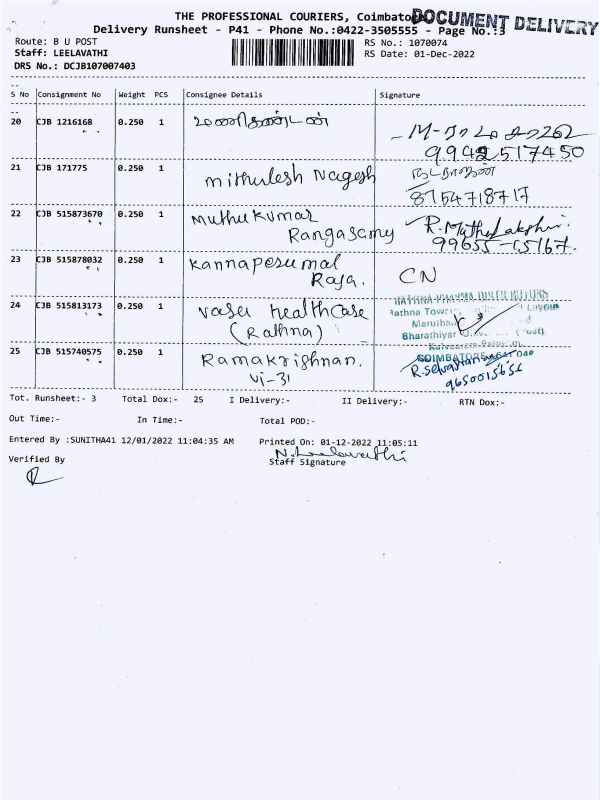 THE PROFESSIONAL COURIERS, Coimbato
DOCUMENT DELIVERY
Delivery Runsheet - P41 - Phone No.:0422-3505555 - Page No.:3
Route: B U POST
RS No.: 1070074
Staff: LEELAVATHI
RS Date: 01-Dec-2022
DRS No.: DCJB107007403
S No Consignment No Weight PCS Consignee Details Signature
20 CJB 1216168 0.250 1 மணிகண்டன்
9942517450
21 CJB 171775 0.250 1 Mithulesh Nagesh
8754718717
22 CJB 515873670 0.250 1 Muthukumar
Rangasamy
R. Muthulakshmi.
99655-15167.
23 CJB 515878032 0.250 1 Kannaperumal
Raja.
CN
24 CJB 515813173 0.250 1 Vasu healthcare
(Rathna)
RATHNA PHARMA DISTRIBUTORS
Rathna Tower, Layout
Barathiyar
COIMBATORE
25 CJB 515740575 0.250 1 Ramakrishnan.
Vi-31
9650015656
Tot. Runsheet:- 3 Total Dox:- 25 I Delivery:- II Delivery:- RTN Dox:-
Out Time:- In Time:- Total POD:-
Entered By :SUNITHA41 12/01/2022 11:04:35 AM Printed On: 01-12-2022 11:05:11
N. Leelavathi
Verified By
Staff Signature